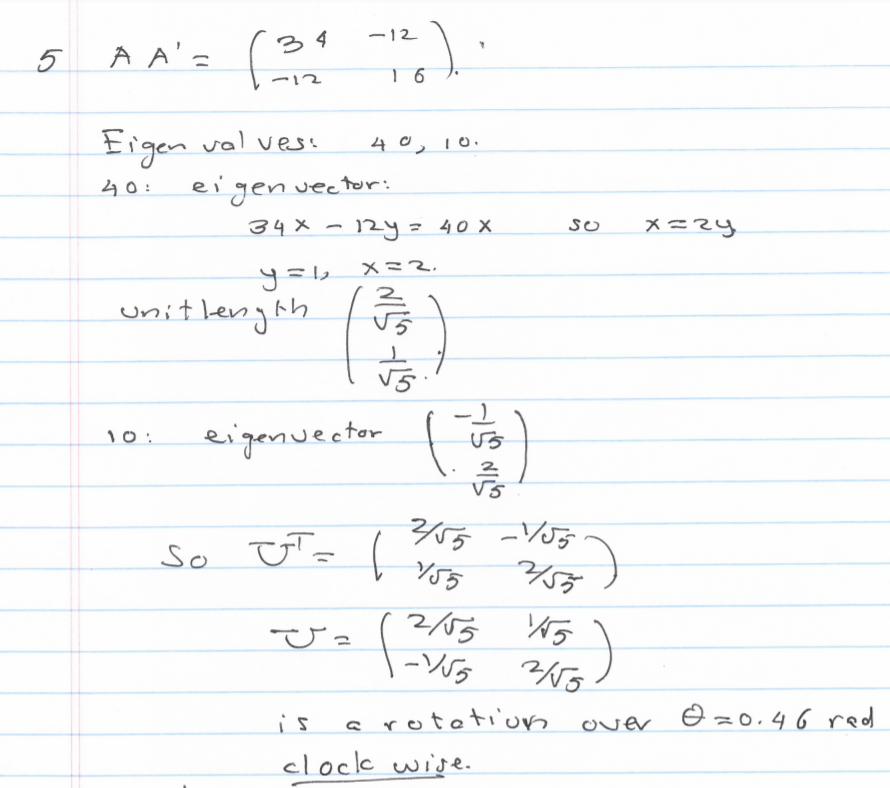 5 A A' = ( 34 -12
-12 16 ).
Eigen values: 40, 10.
40: eigenvector:
34x - 12y = 40x so x = 2y
y = 1, x = 2.
unit length ( 2/√5
1/√5 )
10: eigenvector ( -1/√5
2/√5 )
So U^T = ( 2/√5 -1/√5
1/√5 2/√5 )
U = ( 2/√5 1/√5
-1/√5 2/√5 )
is a rotation over θ = 0.46 rad
clock wise.